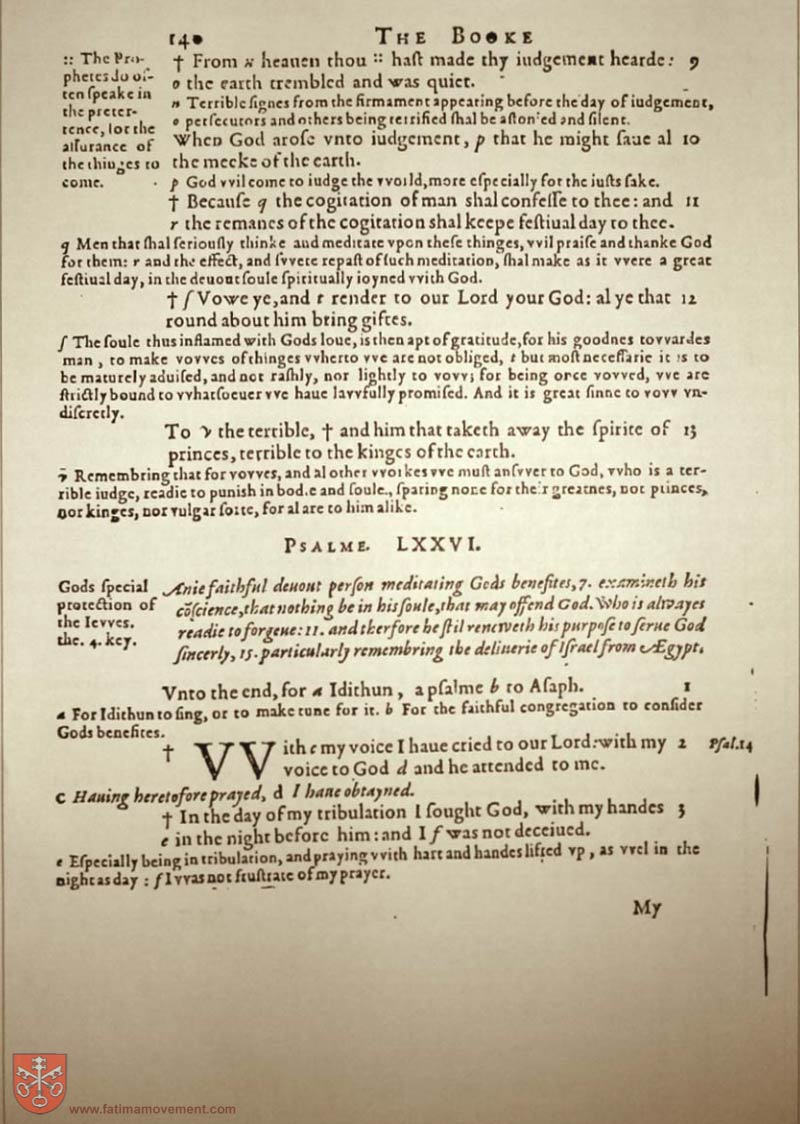 140 THE BOOKE
:: The Pro-
phetes do of-
ten ſpeake in
the preter-
tence, for the
aſſurance of
the thinges to
come.
† From n heauen thou :: haſt made thy iudgement hearde: 9
o the earth trembled and was quiet.
n Terrible ſignes from the firmament appearing before the day of iudgement,
o perſecutors and others being terrified ſhal be aſton'ed and ſilent.
When God aroſe vnto iudgement, p that he might ſaue al 10
the meeke of the earth.
p God vvil come to iudge the vvorld, more eſpecially for the iuſts ſake.
† Becauſe q the cogitation of man shal confeſſe to thee: and 11
r the remanes of the cogitation shal keepe feſtiual day to thee.
q Men that ſhal ſeriouſly thinke and meditate vpon theſe thinges, vvil praiſe and thanke God
for them: r and the effect, and ſvvete repaſt of ſuch meditation, ſhal make as it vvere a great
feſtiual day, in the deuout ſoule ſpiritually ioyned vvith God.
† ſ Vowe ye, and t render to our Lord your God: al ye that 12
round about him bring giftes.
ſ The ſoule thus inflamed with Gods loue, is then apt of gratitude, for his goodnes tovvardes
man, to make vovves of thinges vvherto vve are not obliged, t but moſt neceſſarie it is to
be maturely aduiſed, and not raſhly, nor lightly to vovv; for being once vovved, vve are
ſtrictly bound to vvhatſoeuer vve haue lavvfully promiſed. And it is great ſinne to vovv vn-
diſcretly.
To v the terrible, † and him that taketh away the ſpirite of 13
princes, terrible to the kinges of the earth.
v Remembring that for vovves, and al other vvorkes vve muſt anſvver to God, vvho is a ter-
rible iudge, readie to punish in bodie and ſoule, ſparing none for their greatnes, not princes,
nor kinges, nor vulgar ſorte, for al are to him alike.
PSALME. LXXVI.
Gods ſpecial
protection of
the Ievves.
the. 4. key.
Anie faithful deuout perſon meditating Gods benefites, 7. examineth his
cõſcience, that nothing be in his ſoule, that may offend God. Who is alwayes
readie to forgeue: 11. and therfore he ſtil reneweth his purpoſe to ſerue God
ſincerly, 15. particularly remembring the deliuerie of Iſrael from Ægypt.
Vnto the end, for a Idithun, a pſalme b to Aſaph. 1
a For Idithun to ſing, or to make tune for it. b For the faithful congregation to conſider
Gods benefites.
† VVith c my voice I haue cried to our Lord: with my 2 Pſal.14
voice to God d and he attended to me.
c Hauing heretofore prayed, d I haue obtayned.
† In the day of my tribulation I ſought God, with my handes 3
e in the night before him: and I f was not deceiued.
e Eſpecially being in tribulation, and praying vvith hart and handes lifted vp, as vvel in the
night as day: f I vvas not fruſtrate of my prayer.
My
www.fatimamovement.com